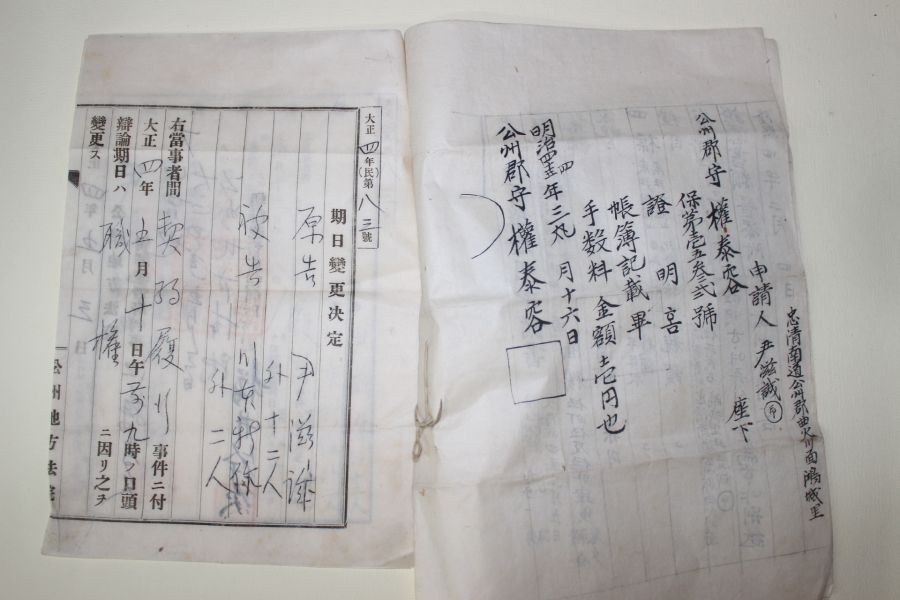 忠清南道公州郡曲火川面鴻城里
申請人 尹滋誠
座下
公州郡守 權泰容
保第壱五参弐號
證明
帳簿記載畢
手数料金額壱円也
明治四 年三 月十六日
公州郡守 權泰容
大正四年(民第八三號)
期日變更决定
原告 尹滋誠
外十二人
被告
外二人
右當事者間契約履行事件ニ付
大正四年五月十日午前九時ノ口頭
辯論期日ハ職權ニ因リ之ヲ
變更ス
公州地方法院